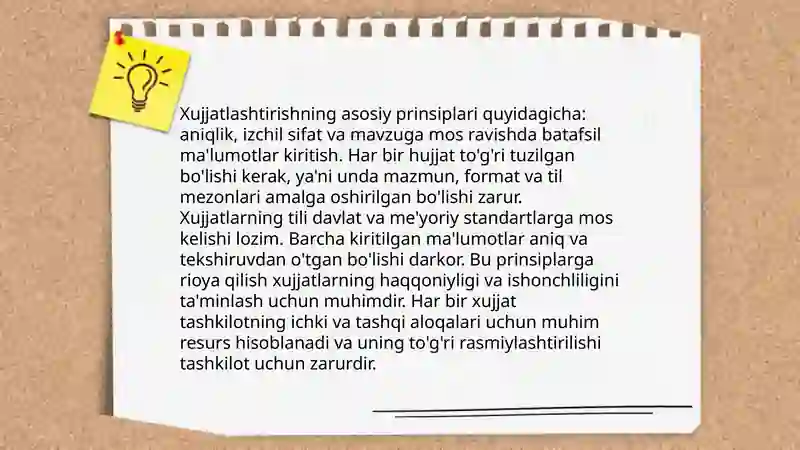 Xujjatlashtirishning asosiy prinsiplari quyidagicha:
aniqlik, izchil sifat va mavzuga mos ravishda batafsil
ma'lumotlar kiritish. Har bir hujjat to'g'ri tuzilgan
bo'lishi kerak, ya'ni unda mazmun, format va til
mezonlari amalga oshirilgan bo'lishi zarur.
Xujjatlarning tili davlat va me'yoriy standartlarga mos
kelishi lozim. Barcha kiritilgan ma'lumotlar aniq va
tekshiruvdan o'tgan bo'lishi darkor. Bu prinsiplarga
rioya qilish xujjatlarning haqqoniyligi va ishonchliligini
ta'minlash uchun muhimdir. Har bir xujjat
tashkilotning ichki va tashqi aloqalari uchun muhim
resurs hisoblanadi va uning to'g'ri rasmiylashtirilishi
tashkilot uchun zarurdir.